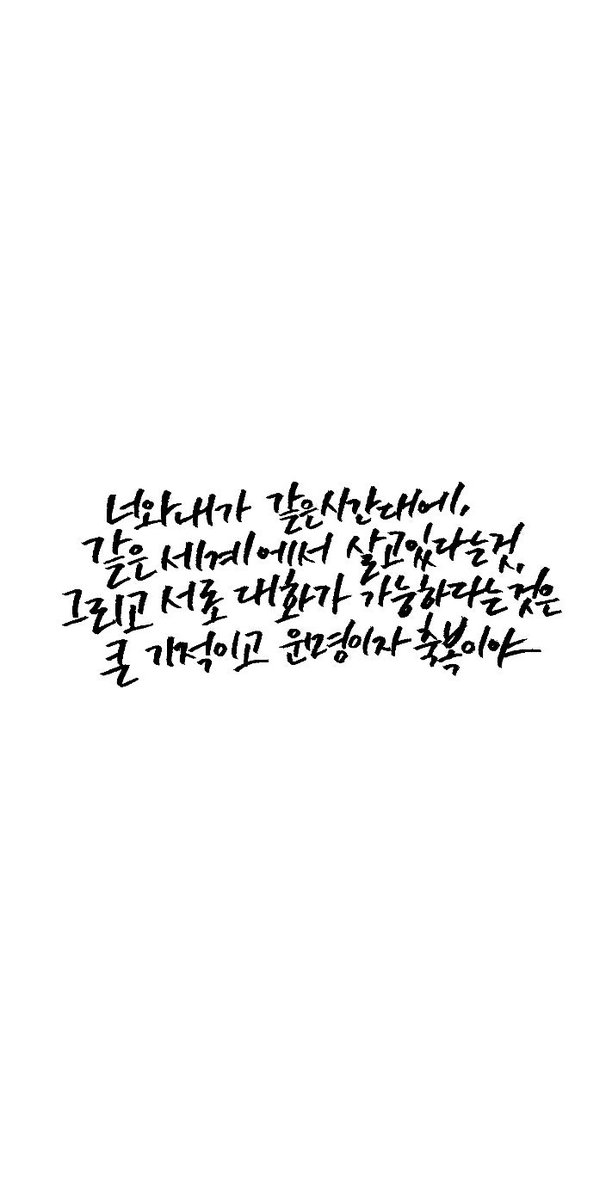 너와 내가 같은 시간대에,
같은 세계에서 살고있다는것,
그리고 서로 대화가 가능하다는것은
큰 기적이고 운명이자 축복이야